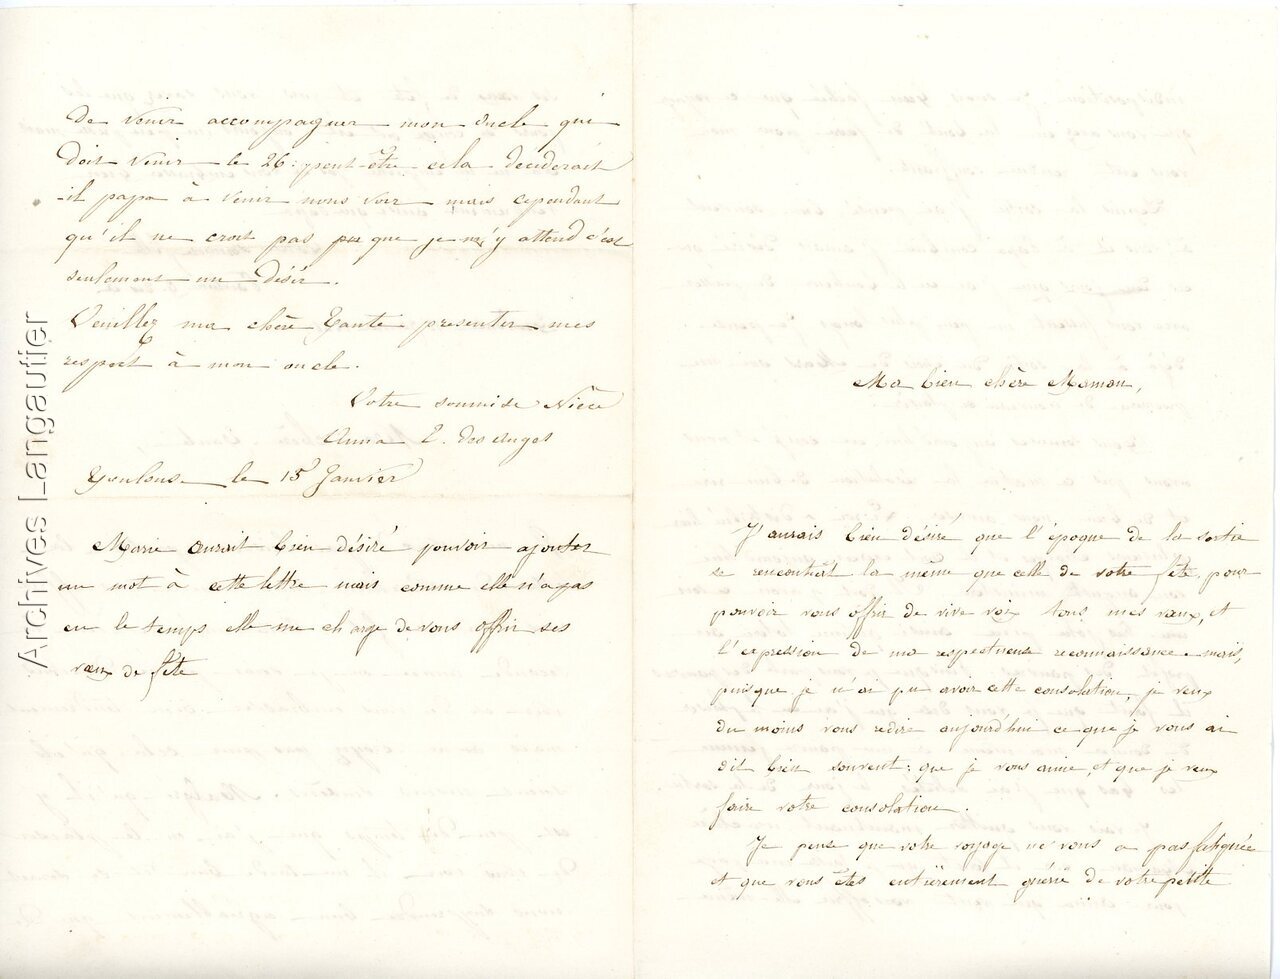 de venir accompagner mon oncle qui
doit venir le 26 : peut-être cela deciderait
-il papa à venir nous voir mais cependant
qu'il ne croit pas que je m'y attend c'est
seulement un désir.
Veuillez ma chère Tante presenter mes
respect à mon oncle.
Votre soumise Nièce
Anna E. des Anges
Toulouse le 15 Janvier
Marie aurait bien désiré pouvoir ajouter
un mot à cette lettre mais comme elle n'a pas
eu le temps elle me charge de vous offrir ses
vœux de fête
Archives Langautier
Ma bien chère Maman,
J'aurais bien désiré que l'époque de la sortie
se rencontrât la même que celle de votre fête, pour
pouvoir vous offrir de vive voix tous mes vœux, et
l'expression de ma respectueuse reconnaissance. mais,
puisque je n'ai pu avoir cette consolation, je veux
du moins vous redire aujourd'hui ce que je vous ai
dit bien souvent : que je vous aime, et que je veux
faire votre consolation.
Je pense que votre voyage ne vous a pas fatiguée
et que vous êtes entièrement guérie de votre petite